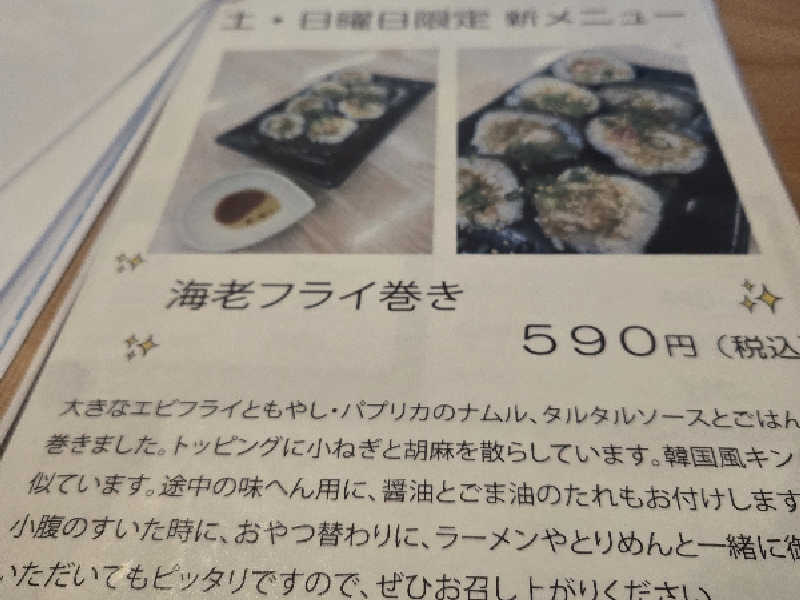 土・日曜日限定 新メニュー
海老フライ巻き
590円（税込
大きなエビフライともやし・パプリカのナムル、タルタルソースとごはん
巻きました。トッピングに小ねぎと胡麻を散らしています。韓国風キン
似ています。途中の味へん用に、醤油とごま油のたれもお付けします
小腹のすいた時に、おやつ替わりに、ラーメンやとりめんと一緒に御
いただいてもピッタリですので、ぜひお召し上がりください